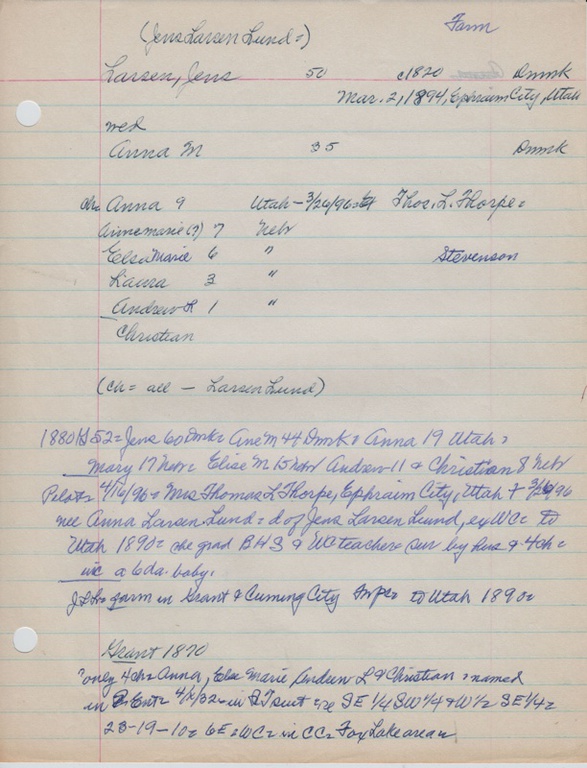 Farm
(Jens Larsen Lund=)
Larsen, Jens 50 c1820 Dnmk
Mar. 2, 1894, Ephraim City, Utah
wed
Anna M 35 Dnmk
ch= Anna 9 Utah - 3/26/96= Thos. L. Thorpe=
Annemarie(?) 7 Nebr
Elsa Marie 6 " Stevenson
Laura 3 "
Andrew L 1 "
Christian
(ch= all - Larsen Lund)
1880 52= Jens 60 Dmk= Ane M 44 Dmk= Anna 19 Utah=
Mary 17 Nebr= Elise M 15 Nebr Andrew 11 & Christian 8 Nebr
Pilot= 4/16/96= Mrs Thomas L Thorpe, Ephraim City, Utah + 3/26/96
nee Anna Larsen Lund= d of Jens Larsen Lund, ex WC= to
Utah 1890= she grad BHS & WC teacher= sur by hus & 4 ch=
inc a 6 da. baby.
farm in Grant & Cuming City twps= to Utah 1890=
Grant 1870
"only 4 ch= Anna, Elsa Marie Andrew L & Christian = named
in 4/2/02= in suit re SE 1/4 SW 1/4 & W 1/2 SE 1/4=
23-19-10= 6E= WC= in CC= Fox Lake area=